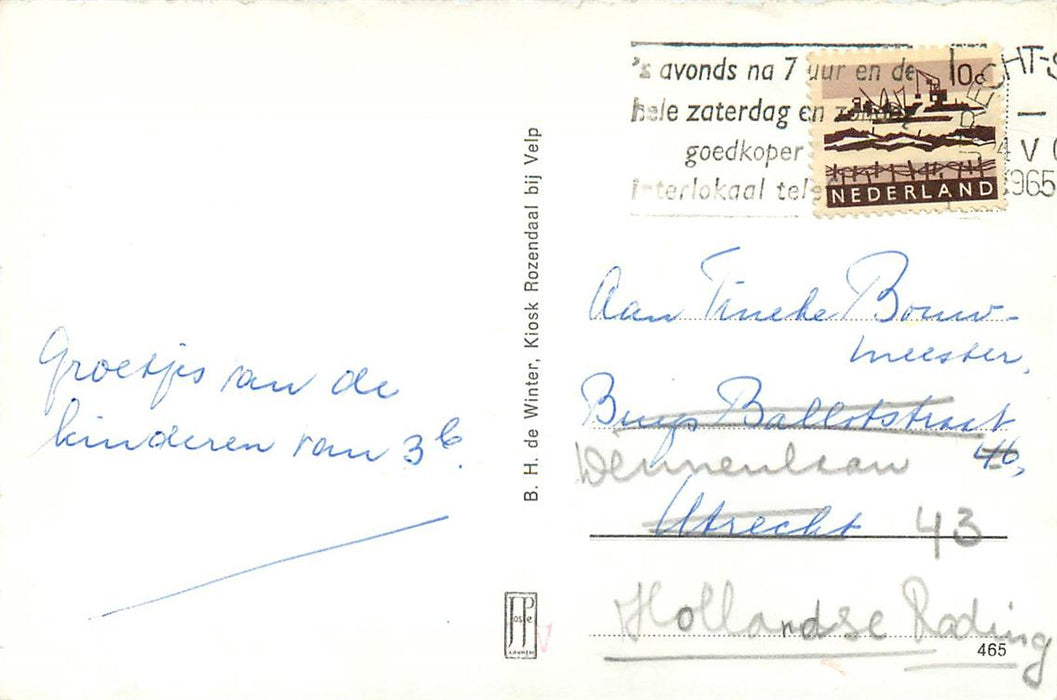 's avonds na 7 uur en de
hele zaterdag en zondag
goedkoper
interlokaal tele
10c
NEDERLAND
1965
B. H. de Winter, Kiosk Rozendaal bij Velp
Groetjes van de
kinderen van 3b.
Aan Tineke Bouw-
meester,
Buys Ballotstraat
46,
Dennenlaan
Utrecht 43
Hollandse Rading
465